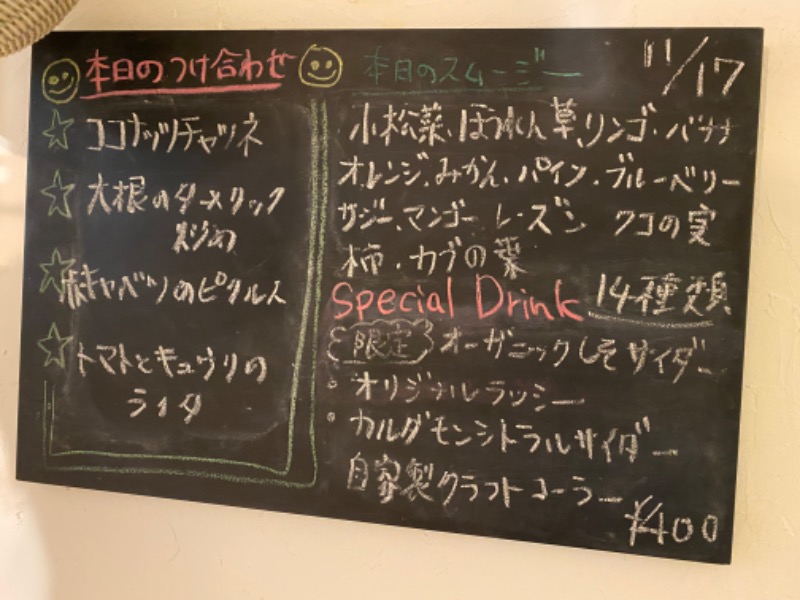 本日のつけ合わせ
☆ ココナッツチャツネ
☆ 大根のターメリック
炒め
☆ 赤キャベツのピクルス
☆ トマトとキュウリの
ライタ
本日のスムージー
11/17
小松菜、ほうれん草、リンゴ、バナナ
オレンジ、みかん、パイン、ブルーベリー
サジー、マンゴー レーズン クコの実
柿、カブの葉
14種類
Special Drink
限定 オーガニックしそサイダー
・オリジナルラッシー
・カルダモンシトラルサイダー
自家製クラフトコーラー
¥400